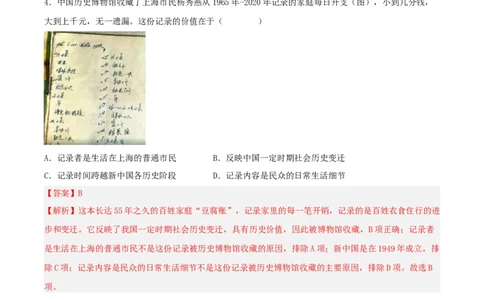 4. 中国历史博物馆收藏了上海市民杨秀燕从 1965 年-2020 年记录的家庭每日开支（图），小到几分钱，
大到上千元，无一遗漏。这份记录的价值在于（ ）
A. 记录者是生活在上海的普通市民 B. 反映中国一定时期社会历史变迁
C. 记录时间跨越新中国各历史阶段 D. 记录内容是民众的日常生活细节
【答案】B
【解析】这本长达 55 年之久的百姓家庭“豆腐账”，记录家里的每一笔开销，记录的是百姓衣食住行的进
步和变迁。它反映了我国一定时期社会历史变迁，具有历史价值，因此被博物馆收藏，B 项正确；记录者
是生活在上海的普通市民不是这份记录被历史博物馆收藏的原因，排除 A 项；新中国是在 1949 年成立，排
除 C 项；记录内容是民众的日常生活细节不是这份记录被历史博物馆收藏的主要原因，排除 D 项。故选 B
项。